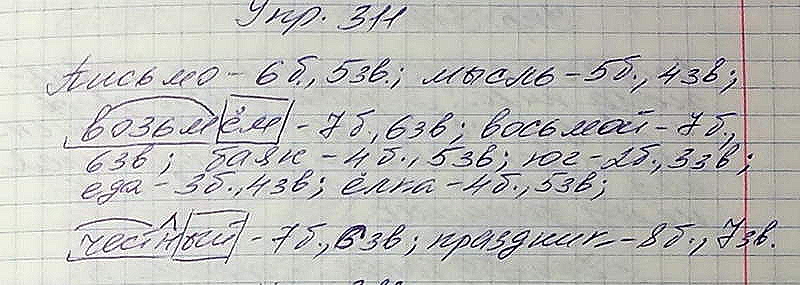 Упр. 311
Письмо - 6 б., 5 зв.; мысль - 5 б., 4 зв;
возьмём - 7 б, 6 зв; восьмой - 7 б.,
6 зв; баян - 4 б., 5 зв; юг - 2 б., 3 зв;
еда - 3 б., 4 зв; ёлка - 4 б., 5 зв;
честный - 7 б., 6 зв; праздник - 8 б., 7 зв.